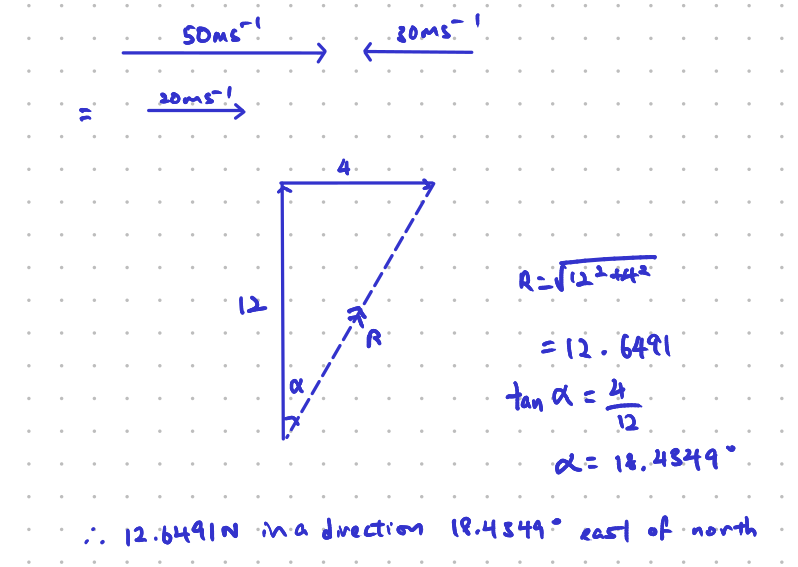 50ms⁻¹ 30ms⁻¹
= 20ms⁻¹
4
12
R
α
R=√12²+4²
=12.6491
tan α = 4/12
α= 18.4349°
∴ 12.6491N in a direction 18.4349° east of north